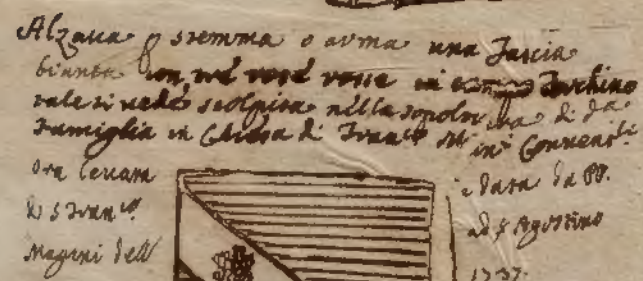 Alzava p stemma o arma una Fascia
bianca con tre rose rosse in campo Torchino
tale si vede scolpita nella sepoltura di da
Famiglia in Chiesa di Fran.co Min. Convent.li
ora levata e data da PP.
di S Fran.co ad s Agostino
Magini dell' 1737.